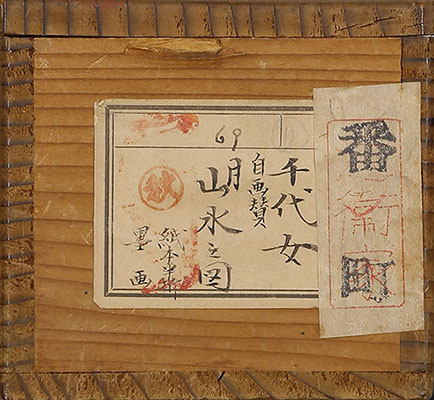 番町
衞家
69
千代女
自画賛
月
山水之図
紙本半折
墨画